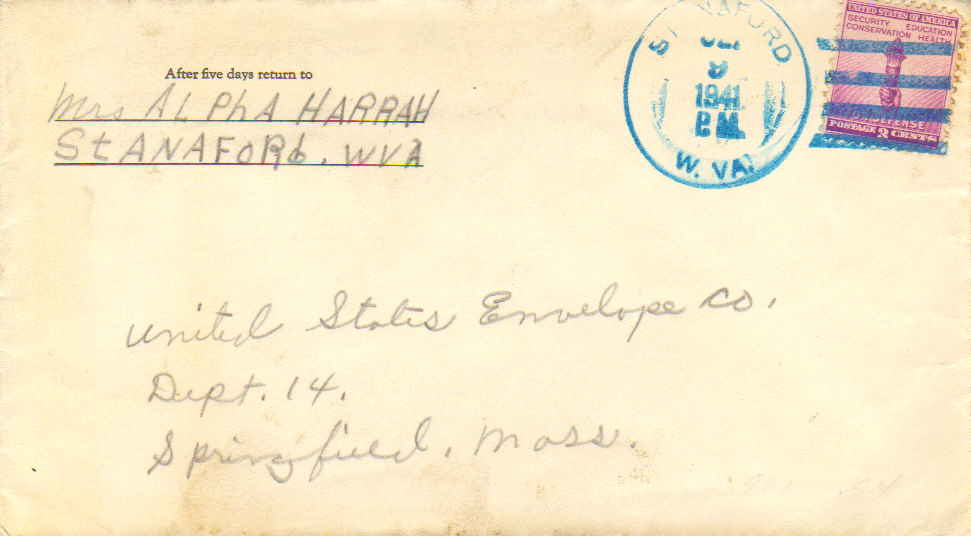 After five days return to
Mrs ALPhA HARRAH
StANAFORd. WVA
STANAFORD
9
1941
P.M.
W. VA.
UNITED STATES OF AMERICA
SECURITY EDUCATION
CONSERVATION HEALTH
DEFENSE
POSTAGE 3 CENTS
United States Envelope Co.
Dept. 14.
Springfield, Mass.